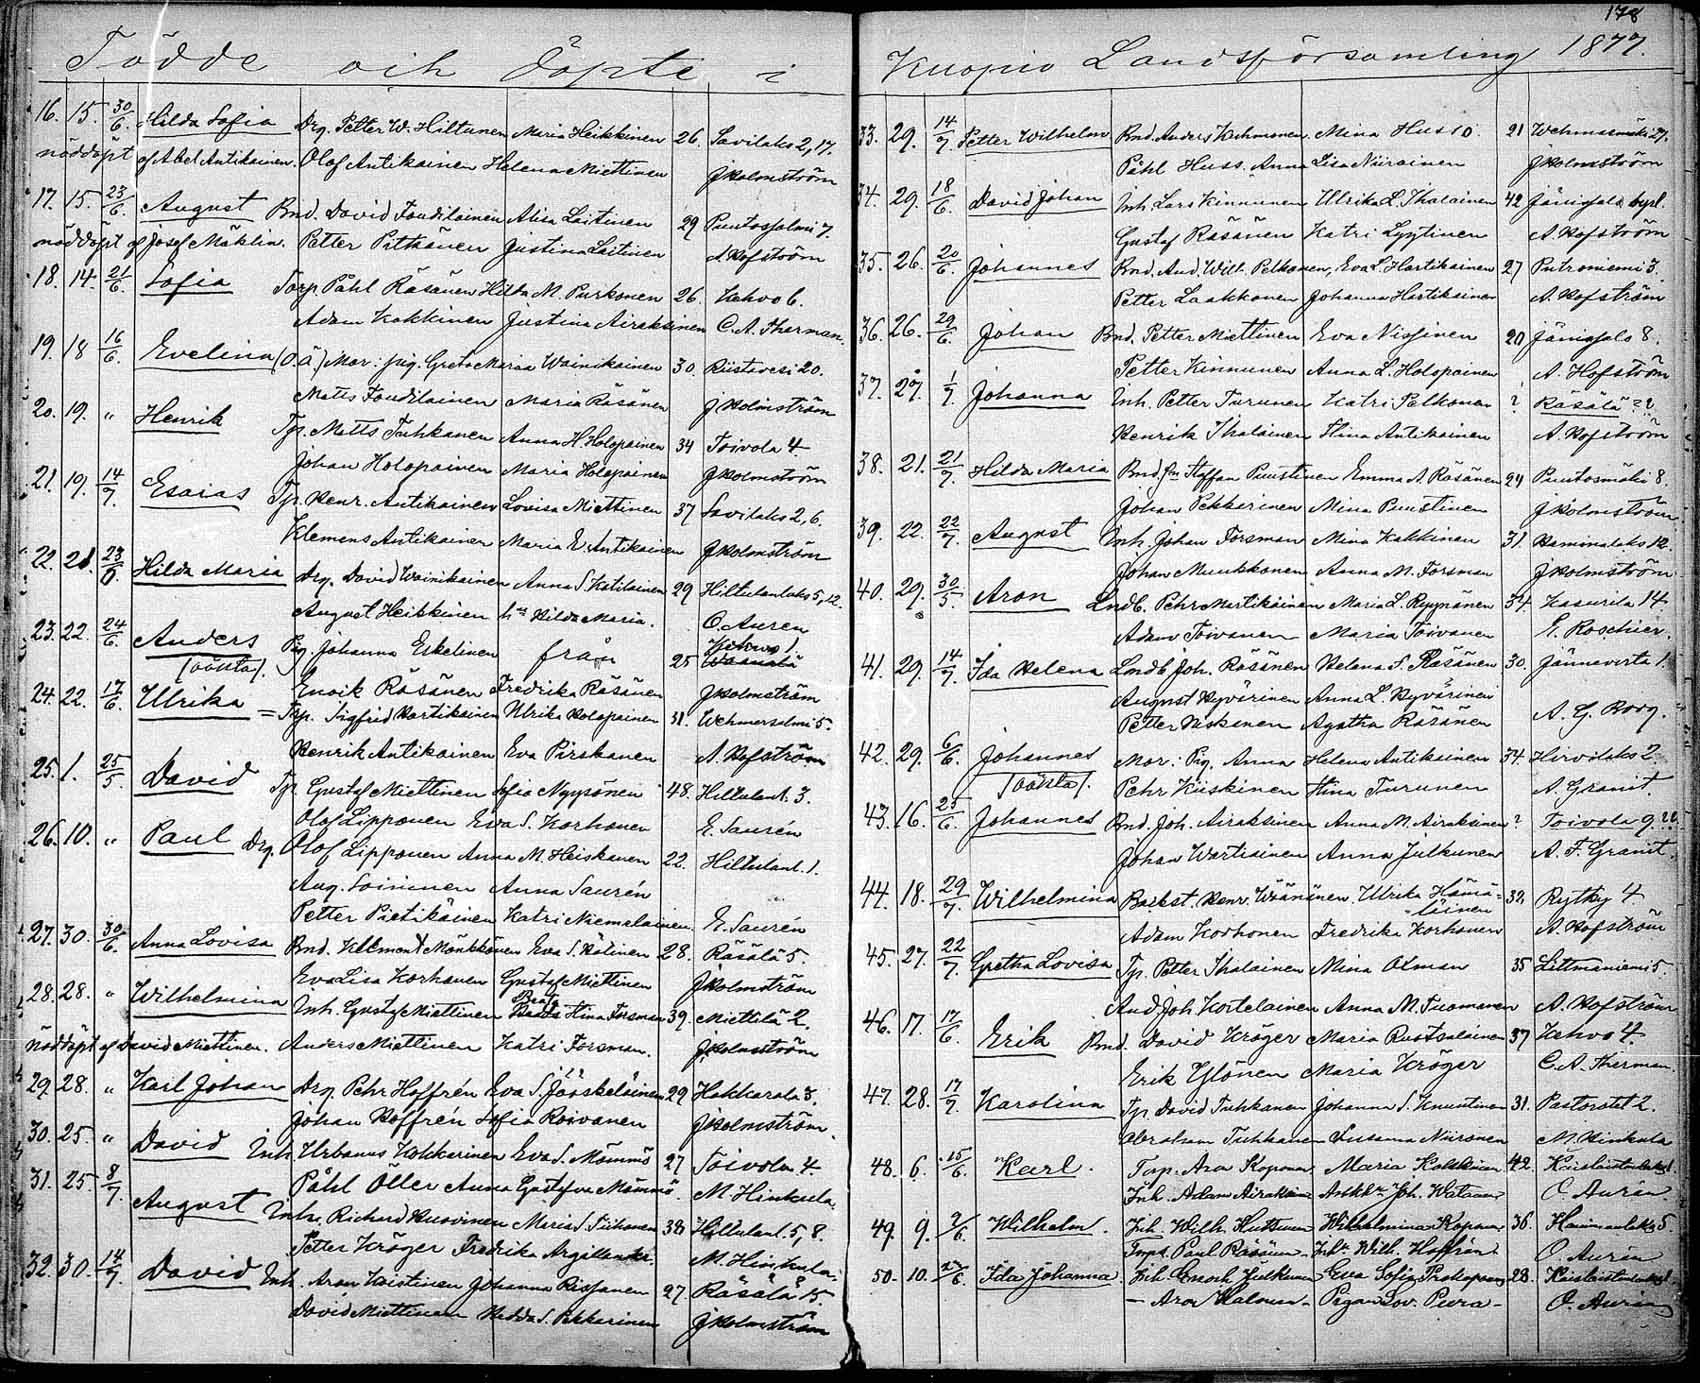 178
Födde och döpte i Kuopio Landsförsamling 1877.
16. 15. 30/6. Hilda Sofia Drg. Petter W. Hiltunen Maria Heikkinen 26. Savilaks 2, 17.
nöddöpt af Abel Antikainen. Olof Antikainen Helena Miettinen J Holmström
17. 15. 23/6. August Bnd. David Foudilainen Alisa Laitinen 29 Puutossalmi 7.
nöddöpt af Josef Mäklin. Petter Pitkänen Justina Laitinen A Hofström
18. 14. 21/6. Sofia Torp. Påhl Räsänen Hilda M. Purkonen 26. Kahvo 6.
Adam Kakkinen Justina Airaksinen C. A. Therman.
19. 18 16/6. Evelina (O. Ä.) Mor. pig. Greta Maria Wainikainen 30. Riistavesi 20.
Matts Foudilainen Maria Räsänen J Holmström
20. 19. " Henrik Tp. Matts Tuhkanen Anna H. Holopainen 34 Toivola 4
Johan Holopainen Maria Holopainen J Holmström
21. 19. 14/7. Esaias Tp. Henr. Antikainen Lovisa Miettinen 37 Savilaks 2, 6.
Klemens Antikainen Maria E. Antikainen J Holmström
22. 21. 23/6 Hilda Maria Drg. David Wainikainen Anna S. Katilainen 29 Hiltulanlaks 5, 12.
August Heikkinen h:s Hilda Maria. O. Auren
23. 22. 24/6. Anders Pig. Johanna Eskelinen från 25 Kehvo 1.
(oäkta). Envik Räsänen Fredrika Räsänen J Holmström
24. 22. 17/6. Ulrika = Torp. Sigfrid Hartikainen Ulrika Holopainen 31. Wehmersalmi 5.
Henrik Antikainen Eva Pirskanen A. Hofström
25. 1. 25/5. David Tp. Gustaf Miettinen Sofia Nyyssönen 48. Hiltulanl. 3.
Olof Lipponen Eva S. Korhonen E. Saurén
26. 10. " Paul Drg. Olof Lipponen Anna M. Heiskanen 22. Hiltulanl. 1.
Aug. Soininen Anna Saurén
Petter Pietikäinen Katri Niemelainen E. Saurén
27. 30. 30/6. Anna Lovisa Bnd. Klement Mönkkönen Eva S. Hätinen 28. Räsälä 5.
Eva Lisa Korhonen Gustaf Miettinen J Holmström
28. 28. " Wilhelmina Inh. Gustaf Miettinen Beata Stina Forsman 39. Miettilä 2.
nöddöpt af David Miettinen. Anders Miettinen Katri Forsman. J Holmström
29. 28. " Karl Johan Drg. Pehr Hoffrén Eva S. Jääskeläinen 29 Hakkarala 3.
Johan Hoffrén Sofia Roivanen J Holmström.
30. 25. " David Inh Urbanus Kokkarinen Eva S. Mömmö 27 Toivola 4
Påhl Öller Anna Gustafva Mömmö. M. Hinkula.
31. 25. 8/7. August Inh. Richard Kuosinen Maria S. Tiihonen 38 Hiltulanl. 5, 8.
Petter Kröger Fredrika Argillander. M. Hinkula.
32. 30. 14/7. David Inh. Aron Koistinen Johanna Rissanen 27 Räsälä 15.
David Miettinen Hedda S. Pekkarinen J Holmström
33. 29. 14/7 Petter Wilhelm Bnd. Anders Wehmanen. Mina Huss 21 Wehmasmäki 27.
Påhl Huss. Anna Lisa Niiranen J Holmström
34. 29. 18/6. David Johan Inh. Lars Kinnunen Ulrika L. Ihalainen 42 Jänissalo byal.
Gustaf Räsänen Katri Lyytinen A. Hofström
35. 26. 20/6. Johannes Bnd. And. Wilh. Pelkonen, Eva L. Hartikainen 27 Putroniemi 3.
Petter Laakkonen Johanna Hartikainen A. Hofström
36. 26. 29/6. Johan Bnd. Petter Miettinen Eva Nissinen 20 Jänissalo 8.
Petter Kinnunen Anna L. Holopainen A. Hofström
37. 27. 1/7. Johanna Inh. Petter Turunen Katri Pelkonen ? Räsälä??
Henrik Ihalainen Stina Antikainen A. Hofström
38. 21. 21/7. Hilda Maria Bnd. sn Staffan Puustinen Emma A. Räsänen 24 Puutosmäki 8.
Johan Pekkarinen Mina Puustinen J Holmström
39. 22. 22/7. August Inh. Johan Forsman Mina Kakkinen 31. Haminalaks 12.
Johan Munkkonen Anna M. Forsman J Holmström
40. 29. 30/5. Aron Landb. Pehr Martikainen Maria L. Ryynänen 34. Kasurila 14
Adam Toivanen Maria Toivanen E. Roschier.
41. 29. 14/7. Ida Helena Landb Joh. Räsänen Helena S. Räsänen 30. Jännevirta 1.
August Hyvärinen Anna L. Hyvärinen
Petter Niskanen Agatha Räsänen A. G. Borg.
42. 29. 6/6. Johannes Mor: Pig. Anna Helena Antikainen 34. Hirvilaks 2
(oäkta). Pehr Kiiskinen Stina Turunen A. Granit.
43. 16. 25/6. Johannes Bnd. Joh. Airaksinen Anna M. Airaksinen ? Toivola 9.??
Johan Wartiainen Anna Julkunen A. F. Granit.
44. 18. 29/7. Wilhelmina Backst. Henr. Wäänänen. Ulrika Hämä=
läinen 32. Rytky 4
Adam Korhonen Fredrika Korhonen A. Hofström
45. 27. 22/7. Gretha Lovisa Tp. Petter Ihalainen Mina Oxman 35 Littmaniemi 5.
And Joh. Kortelainen Anna M. Tuomanen A. Hofström
46. 17. 17/6. Erik Bnd. David Kröger Maria Ruotsalainen 37 Kehvo 4.
Erik Ylönen Maria Kröger C. A. Therman.
47. 28. 17/7. Karolina Tp David Tuhkanen Johanna S. Knuutinen 31. Pastorstet 2.
Abraham Tuhkanen Susanna Niironen M. Hinkula
48. 6. 15/6. Karl. Torp. Ara Koponen Maria Kokkinen 42.
Inh. Adam Airaksinen O. Aurén.
49. 9. 9/6. Wilhelm. Inh. Wilh. Huttunen Wilhelmina Koponen 36. Haminanlaks 5.
Torp. Paul Räsänen - Inh. Wilh. Hoffrén O Aurén
50. 10. 24/6. Ida Johanna Inh. Enoch Julkunen Eva Sofia 28.
— Aron Halonen - Pigan Lov. Pura - O. Aurén